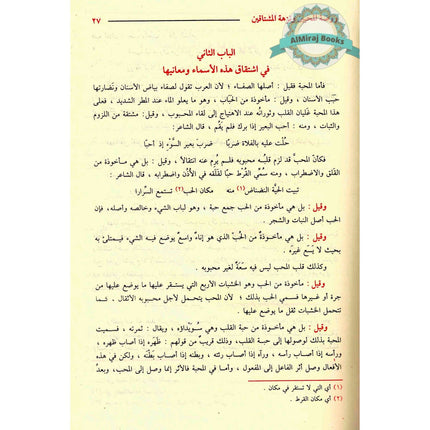 روضة المحبين ونزهة المشتاقين ٢٧
AlMiraj Books
الباب الثاني
في اشتقاق هذه الأسماء ومعانيها
فأما المحبة فقيل : أصلها الصفاء ؛ لأن العرب تقول لصفاء بياض الأسنان ونَضارتها
حَبَب الأسنان ، وقيل : مأخوذة من الحَبَاب ، وهو ما يعلو الماء عند المطر الشديد ، فعلى
هذا المحبة غَلَيان القلب وثورانُه عند الاهتياج إلى لقاء المحبوب ، وقيل : مشتقة من اللزوم
والثبات ، ومنه : أحب البعير إذا برك فلم يَقُم ، قال الشاعر :
حُلْت عليه بالفَلاة ضربًا ضربَ بعيرِ السَّوْءِ إذ أحبَّا
فكأنّ المحبَّ قد لزم قلبُه محبوبَه فلم يَرُم عنه انتقالًا ، وقيل : بل هي مأخوذة من
القَلَق والاضطراب ، ومنه سُمِّي القُرط حِبًّا لقَلَقه في الأُذُن واضطرابه ، قال الشاعر :
تبيت الحيَّة النضناض(١) منه مكان الحب(٢) تستمع السِّرارا
وقيل : بل هي مأخوذة من الحب جمع حبة ، وهو لباب الشيء وخالصه وأصله، فإن
الحب أصل النبات والشجر .
وقيل : بل هي مأخوذةٌ من الحُبّ الذي هو إناءٌ واسعٌ يوضع فيه الشيء فيمتلئ به
بحيث لا يَسَع غيرَه .
وكذلك قلب المحب ليس فيه سَعَةٌ لغير محبوبه .
وقيل : مأخوذة من الحب وهو الخشبات الأربع التي يستقر عليها ما يوضع عليها من
جرة أو غيرها فسمي الحب بذلك ؛ لأن المحب يتحمل لأجل محبوبه الأثقال . كما تتحمل
الخشبات ثقل ما يوضع عليها .
وقيل : بل هي مأخوذة من حبة القلب وهي سُوَيْداؤه ، ويقال : ثمرته ، فسميت
المحبة بذلك لوصولها إلى حبة القلب ، وذلك قريبٌ من قولهم : ظَهَره إذا أصاب ظهره ،
ورأسه إذا أصاب رأسه ، ورآه إذا أصاب رئته ، وبطنه إذا أصاب بَطْنَه ، ولكن في هذه
الأفعال وصل أثر الفاعل إلى المفعول ، وأما في المحبة فالأثر إنما وصل إلى المحب ، وبعدُ
(١) أي التي لا تستقر في مكان .
(٢) أي مكان القرط .